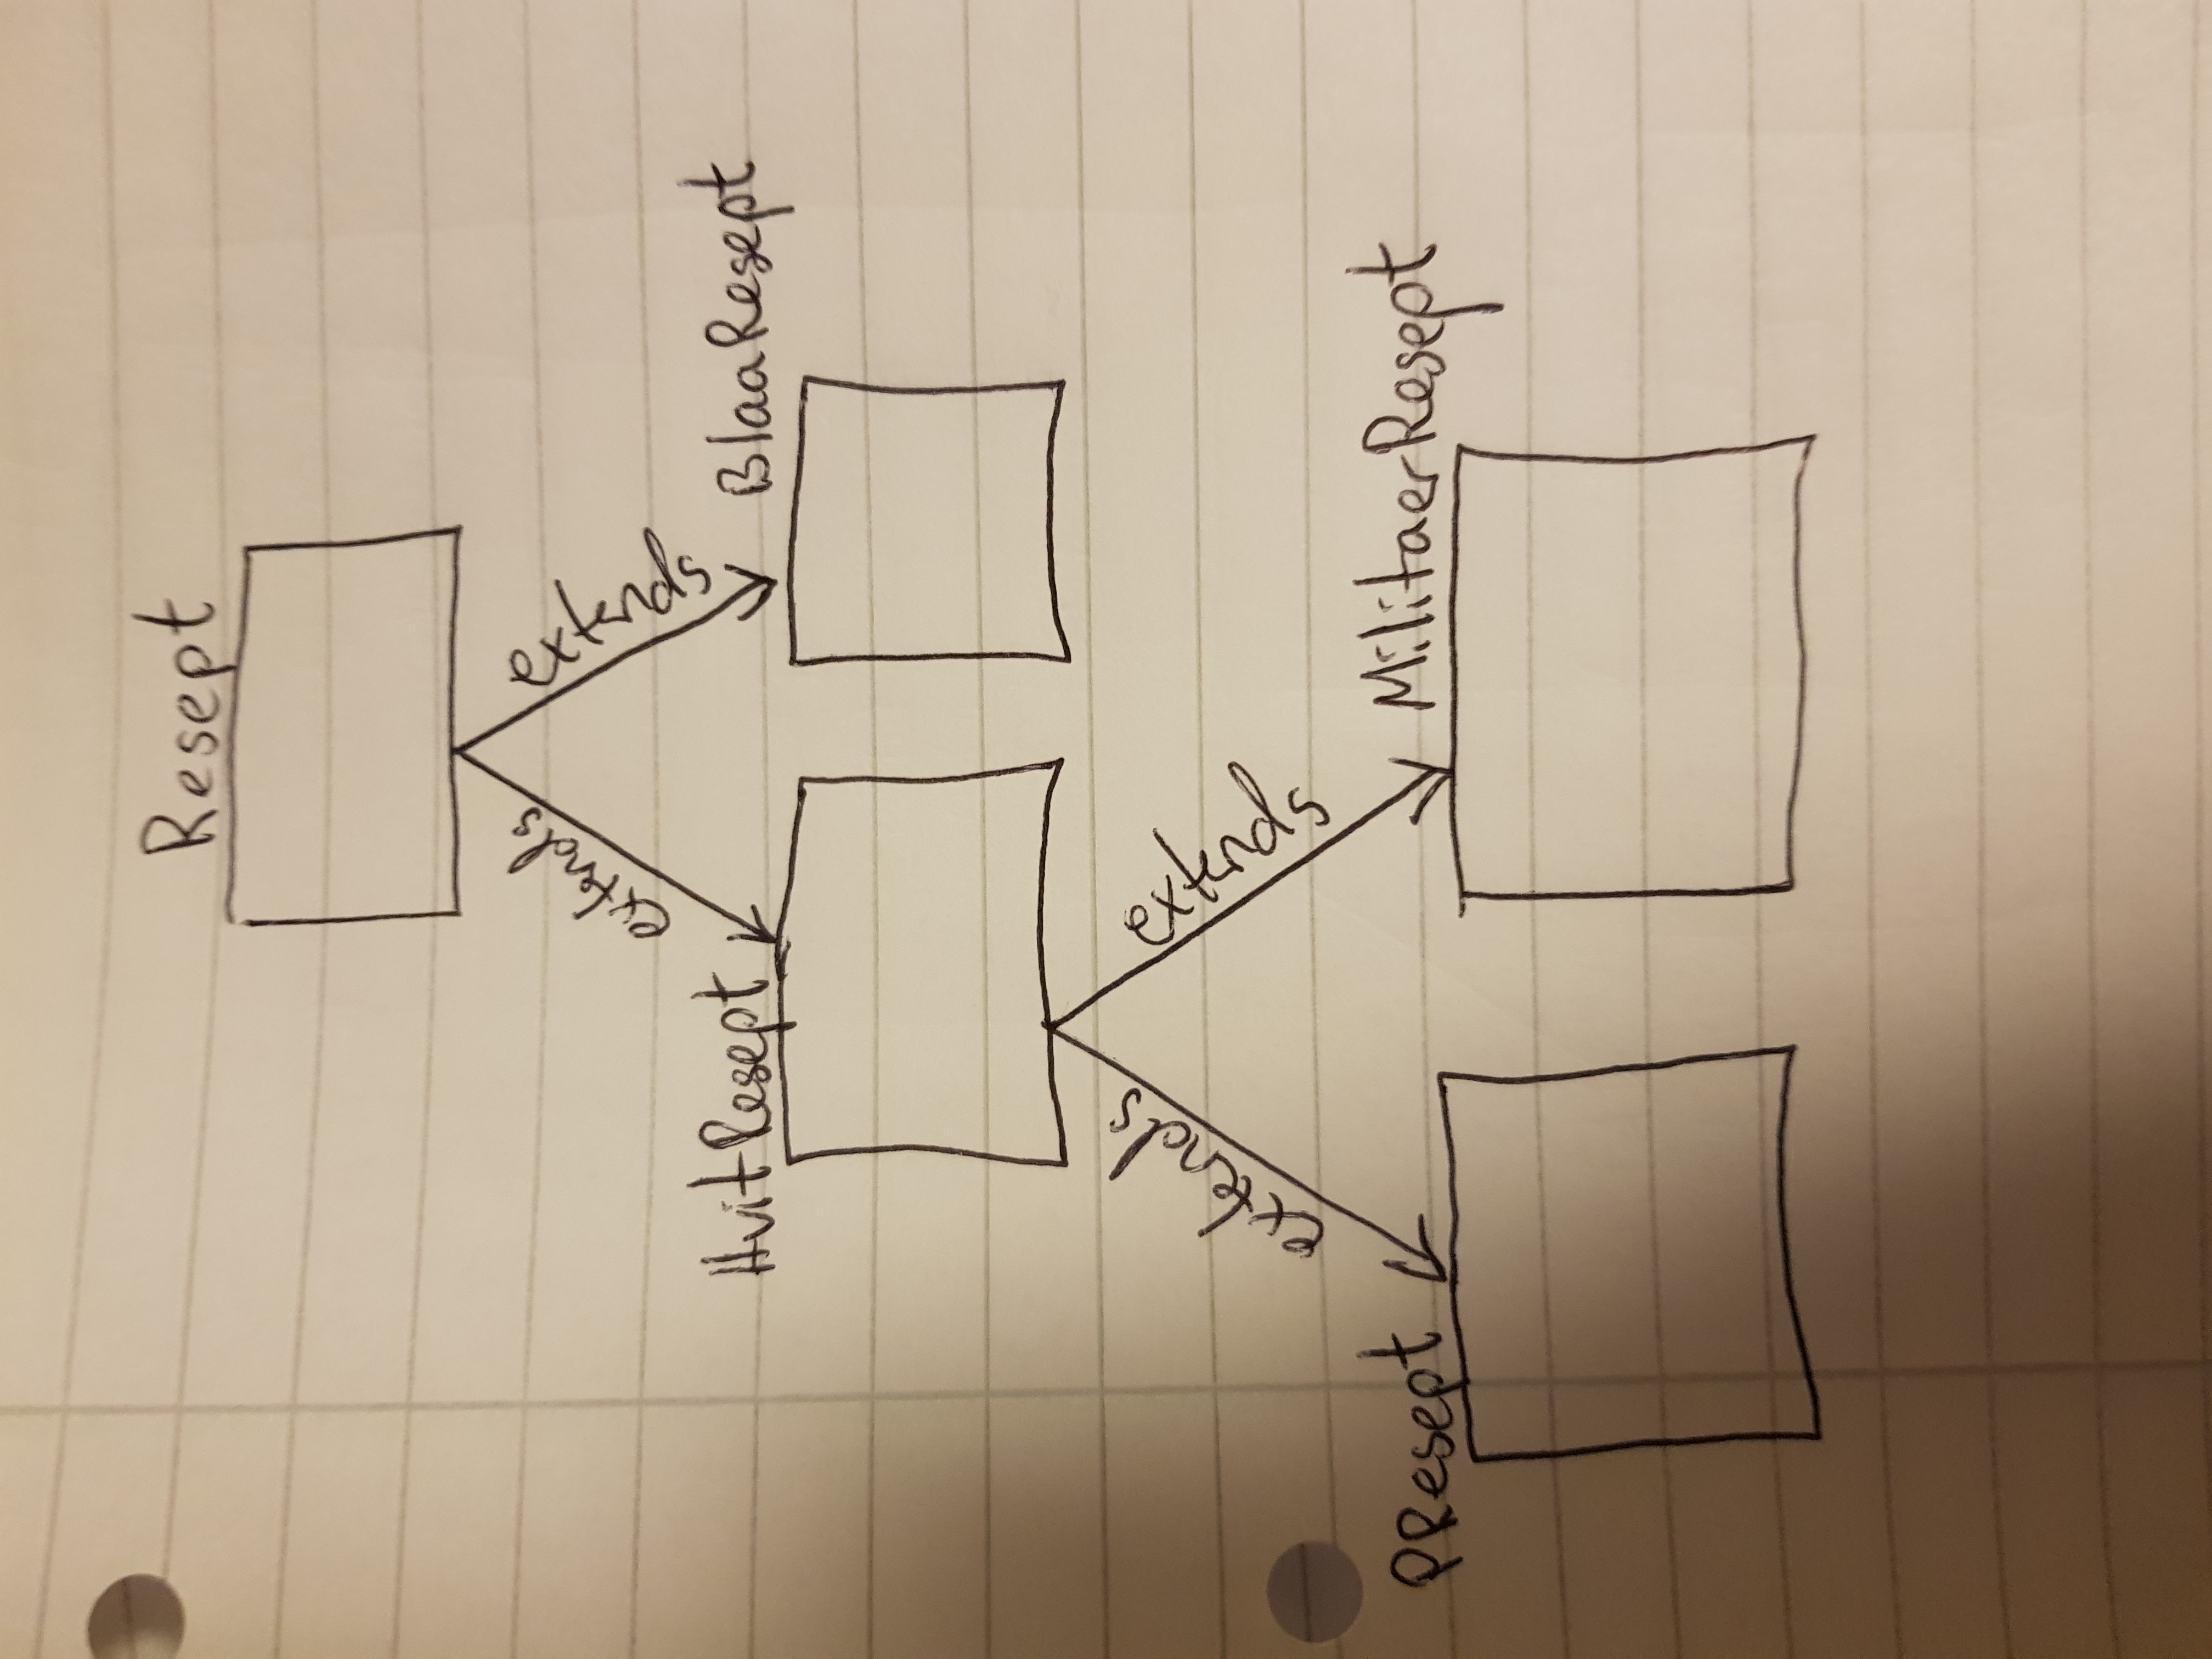 Resept
extends
extends
HvitResept
BlaaResept
extends
extends
PResept
MilitaerResept